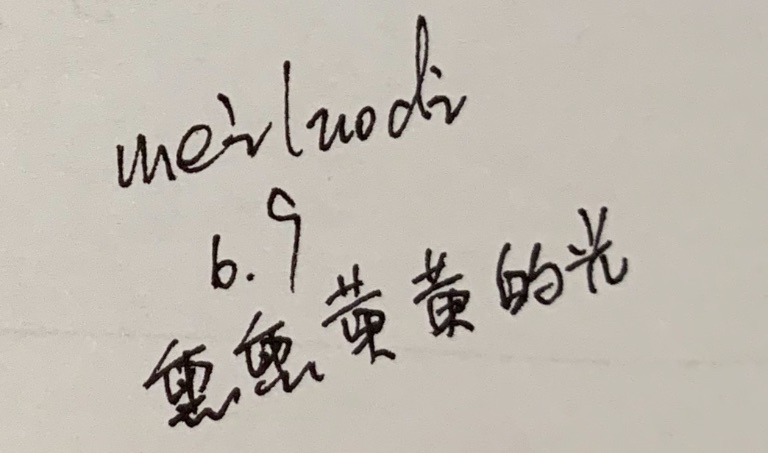 meiluodi
6.9
黄黄的光